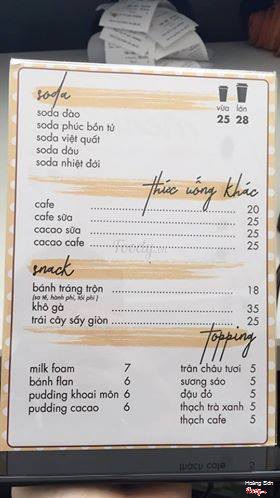 soda
vừa lớn
25 28
soda dào
soda phúc bồn tử
soda việt quất
soda dâu
soda nhiệt đới
thức uống khác
cafe 20
cafe sữa 25
cacao sữa 25
cacao cafe 25
Foody.vn
snack
bánh tráng trộn 18
(sa tế, hành phi, tỏi phi)
khô gà 35
trái cây sấy giòn 25
topping
milk foam 7
bánh flan 6
pudding khoai môn 6
pudding cacao 6
trân châu tươi 5
sương sáo 5
đậu đỏ 5
thạch trà xanh 5
thạch cafe 5
Hoàng Sơn